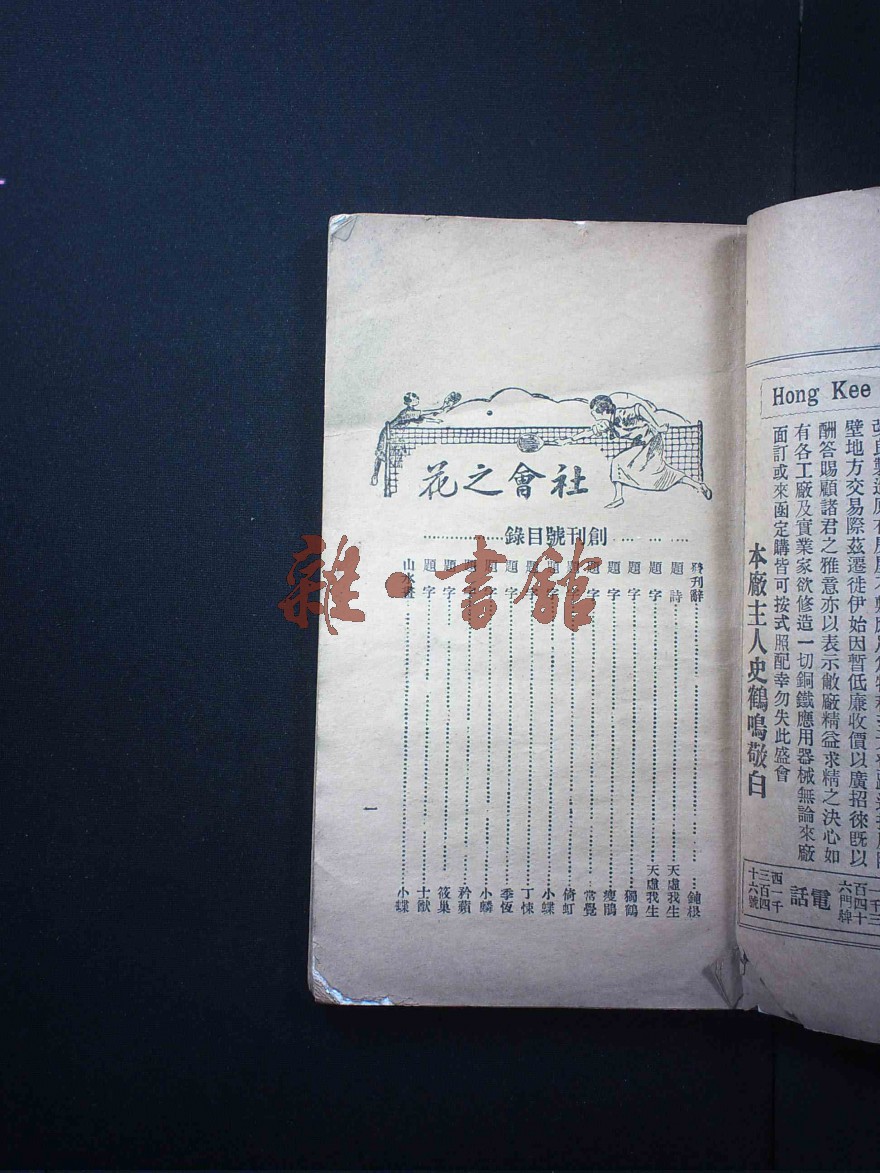 Hong Kee
壁地方交易際茲遷徙伊始因暫低廉收價以廣招徠既以
酬答賜顧諸君之雅意亦以表示敝廠精益求精之決心如
有各工廠及實業家欲修造一切銅鐵應用器械無論來廠
面訂或來函定購皆可按式照配幸勿失此盛會
本廠主人史鶴鳴敬白
電話
西一千
三百四
十六號
社會之花
創刊號目錄
刊辭 鍊根
題詩 天虛我生
題字 天虛我生
題字 獨鶴
題字 瘦鵑
題字 常覺
題字 倚虹
題字 小蝶
題字 丁悚
題字 季恆
題字 小鱗
題字 矜蘋
題字 筱巢
題字 士猷
山水畫 小蝶
一
雜·書館